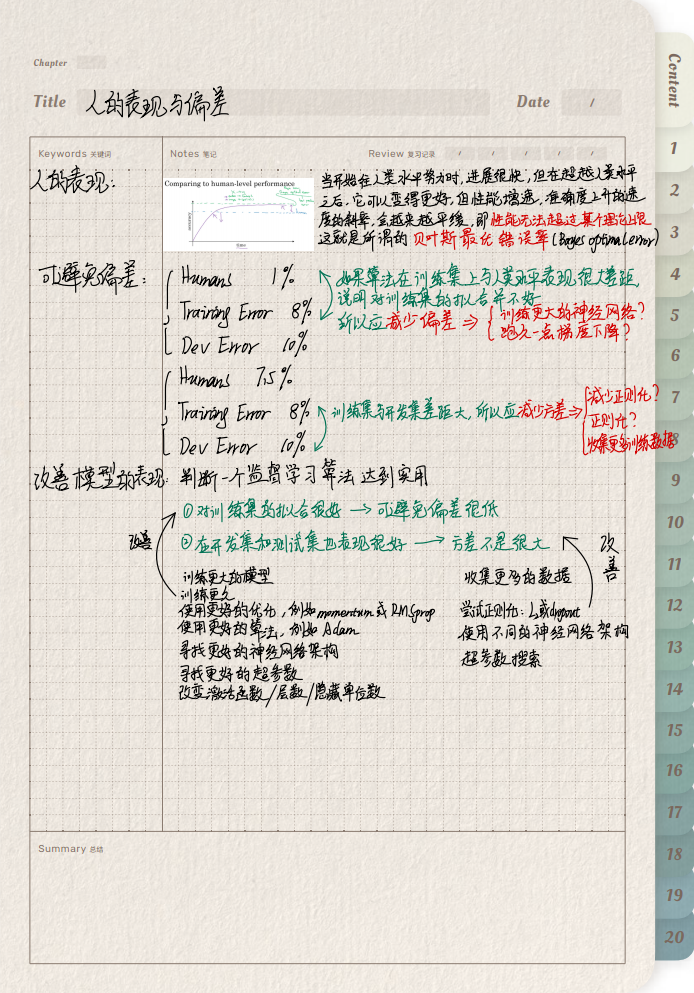 Chapter
Title 人的表现与偏差 Date /
Content
Keywords 关键词 Notes 笔记 Review 复习记录 / / / / /
人的表现:
Comparing to human-level performance
当开始在人类水平努力时,进展很快,但在超越人类水平
之后,它可以变得更好,但性能增速,准确度上升的速
度的斜率,会越来越平缓,即性能无法超过某个理论上限
这就是所谓的 贝叶斯最优错误率 (Bayes optimal error)
可避免偏差:
Humans 1%
Training Error 8%
Dev Error 10%
如果算法在训练集上与人类水平表现很大差距,
说明对训练集的拟合并不好
所以应减少偏差 ⇒ { 训练更大的神经网络?
跑久一点梯度下降?
Humans 7.5%
Training Error 8%
Dev Error 10%
训练集与开发集差距大,所以应减少方差⇒
减少正则化?
正则化?
收集更多训练数据
改善模型的表现: 判断一个监督学习算法达到实用
①对训练集的拟合很好 → 可避免偏差很低
②在开发集和测试集也表现很好 → 方差不是很大
改善
训练更大的模型
训练更久
使用更好的优化,例如momentum或RMSprop
使用更好的算法,例如 Adam
寻找更好的神经网络架构
寻找更好的超参数
改变激活函数/层数/隐藏单位数
改善
收集更多的数据
尝试正则化: L2或dropout
使用不同的神经网络架构
超参数搜索
Summary 总结
1
2
3
4
5
6
7
8
9
10
11
12
13
14
15
16
17
18
19
20